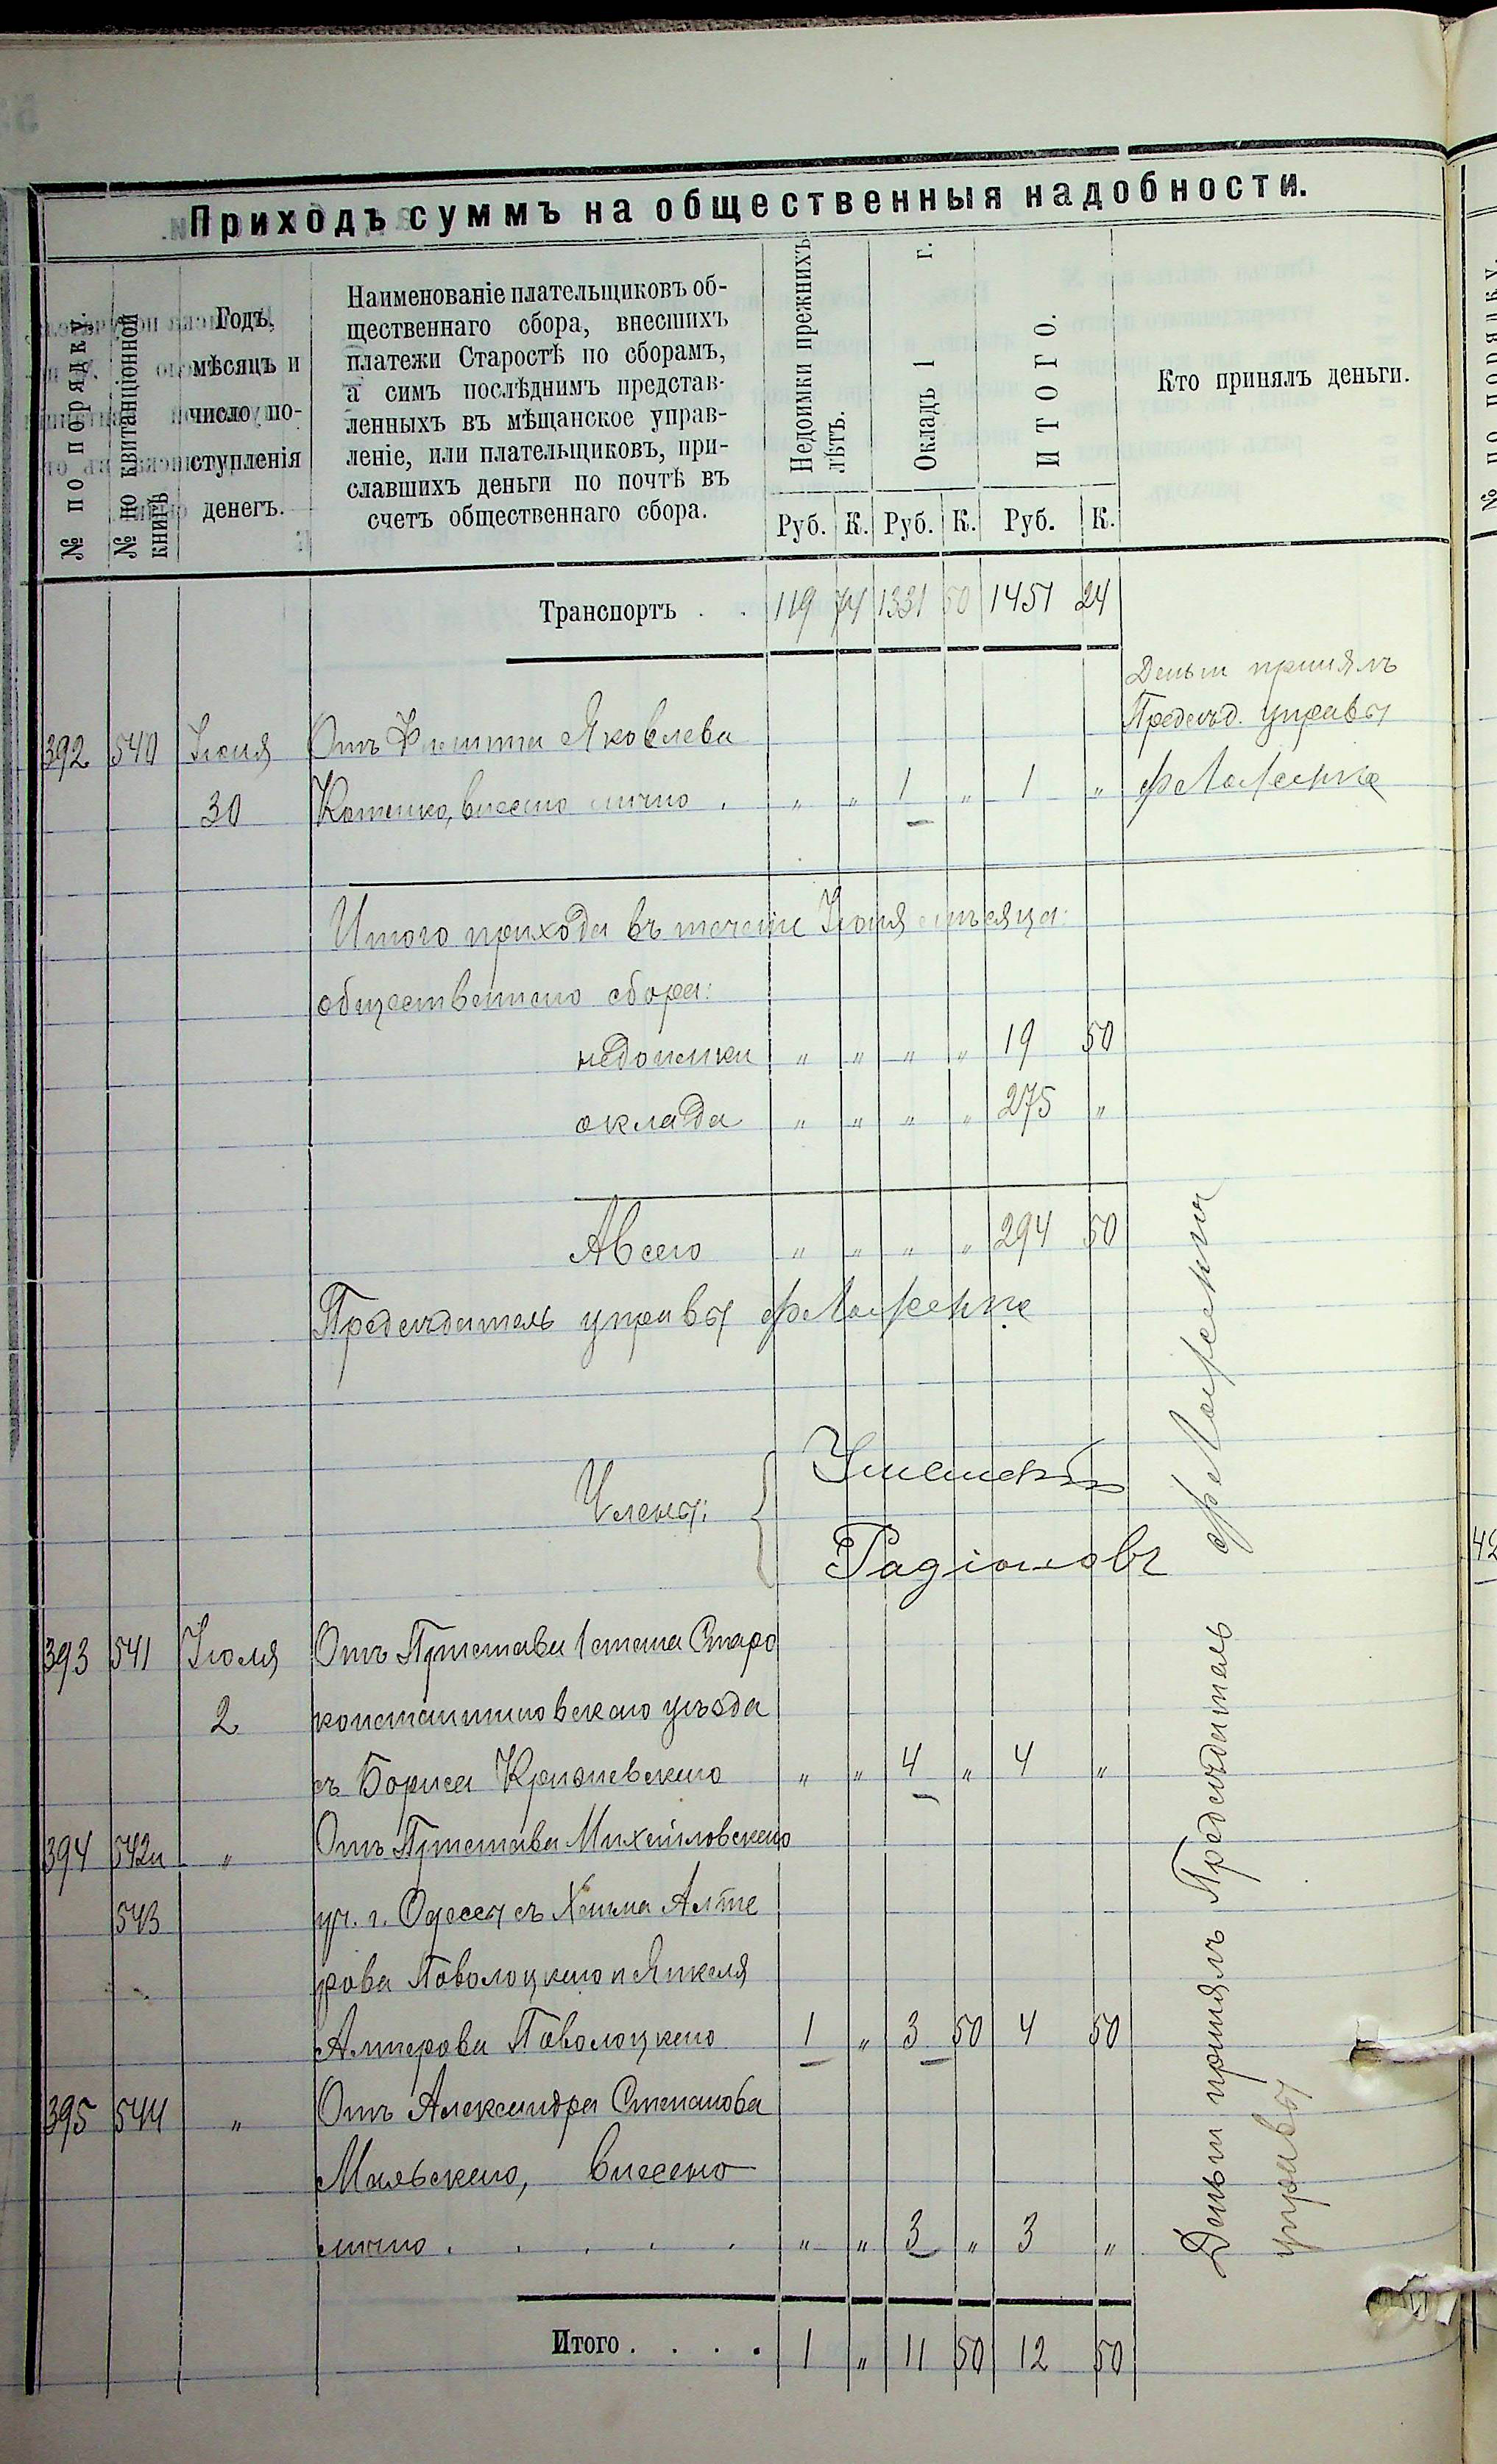 Приходъ суммъ на общественныя надобности.
№ по порядку.
№ по квитанціонной книгѣ
Годъ, мѣсяцъ и число поступленія денегъ.
Наименованіе плательщиковъ об-
щественнаго сбора, внесшихъ
платежи Старостѣ по сборамъ,
а симъ послѣднимъ представ-
ленныхъ въ мѣщанское управ-
леніе, или плательщиковъ, при-
славшихъ деньги по почтѣ въ
счетъ общественнаго сбора.
Недоимки прежнихъ лѣтъ.
Окладъ 1 г.
ИТОГО.
Кто принялъ деньги.
Руб. К. Руб. К. Руб. К.
Транспортъ . . 119 74 1331 50 1451 24
Деньги принялъ
Предсѣд. управы
392 540 Іюня Отъ Филиппа Яковлева
30 внесено лично . " " 1 " 1 "
Итого прихода въ теченіе Іюня мѣсяца:
общественнаго сбора:
недоимки " " " " 19 50
оклада " " " " 275 "
А всего " " " " 294 50
Предсѣдатель управы
Члены: {
Радіоновъ
393 541 Іюля Отъ Пристава 1 стана Старо
2 константиновскаго уѣзда
съ Бориса " " 4 " 4 "
394 542 и " Отъ Пристава Михайловскаго
543 уч. г. Одессы съ Хаима Алте
рова Поволоцкаго и Янкеля
Алтерова Поволоцкаго 1 " 3 50 4 50
395 544 " Отъ Александра Степанова
Мальскаго, внесено
лично . . . . . " " 3 " 3 "
Итого . . . . 1 " 11 50 12 50
Деньги принялъ Предсѣдатель
управы